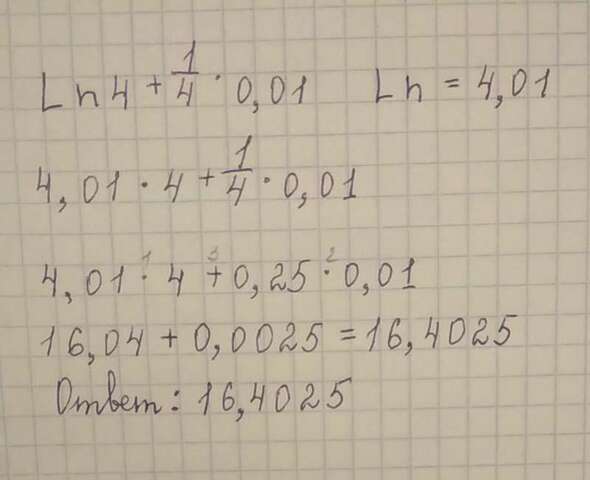 Ln 4 + 1/4 · 0,01 Ln = 4,01
4,01 · 4 + 1/4 · 0,01
4,01 ·¹ 4 +³ 0,25 ·² 0,01
16,04 + 0,0025 = 16,4025
Ответ: 16,4025